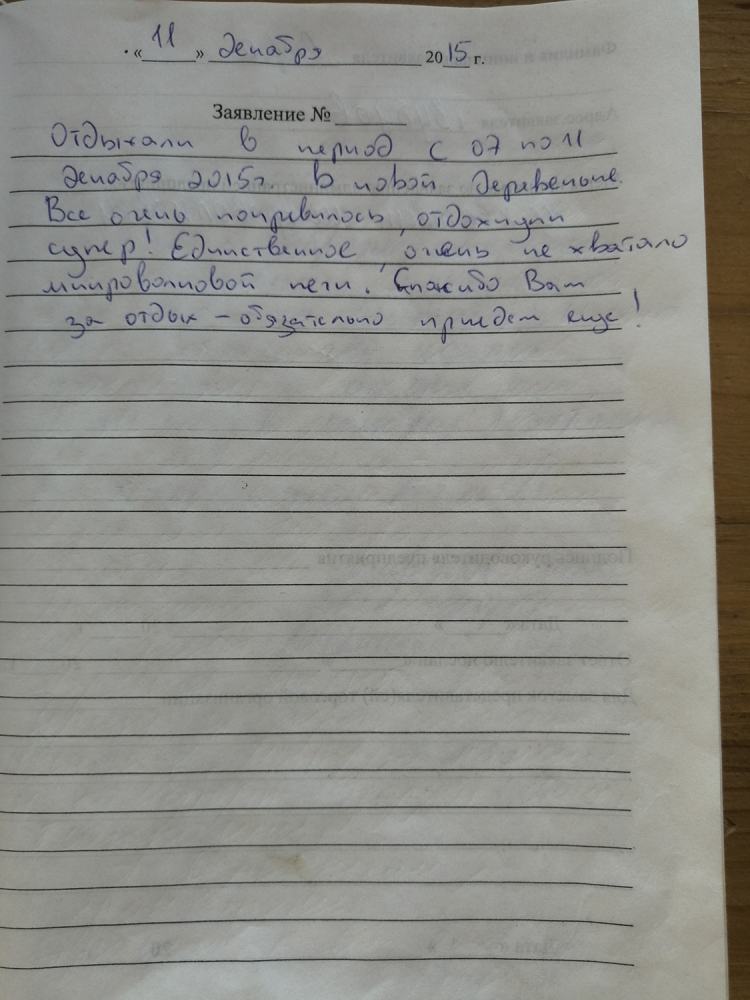 «11» декабря 2015 г.
Заявление №
Отдыхали в период с 07 по 11
декабря 2015г. в новой деревеньке.
Все очень понравилось, отдохнули
супер! Единственное, очень не хватало
микроволновой печи. Спасибо Вам
за отдых – обязательно приедем еще!